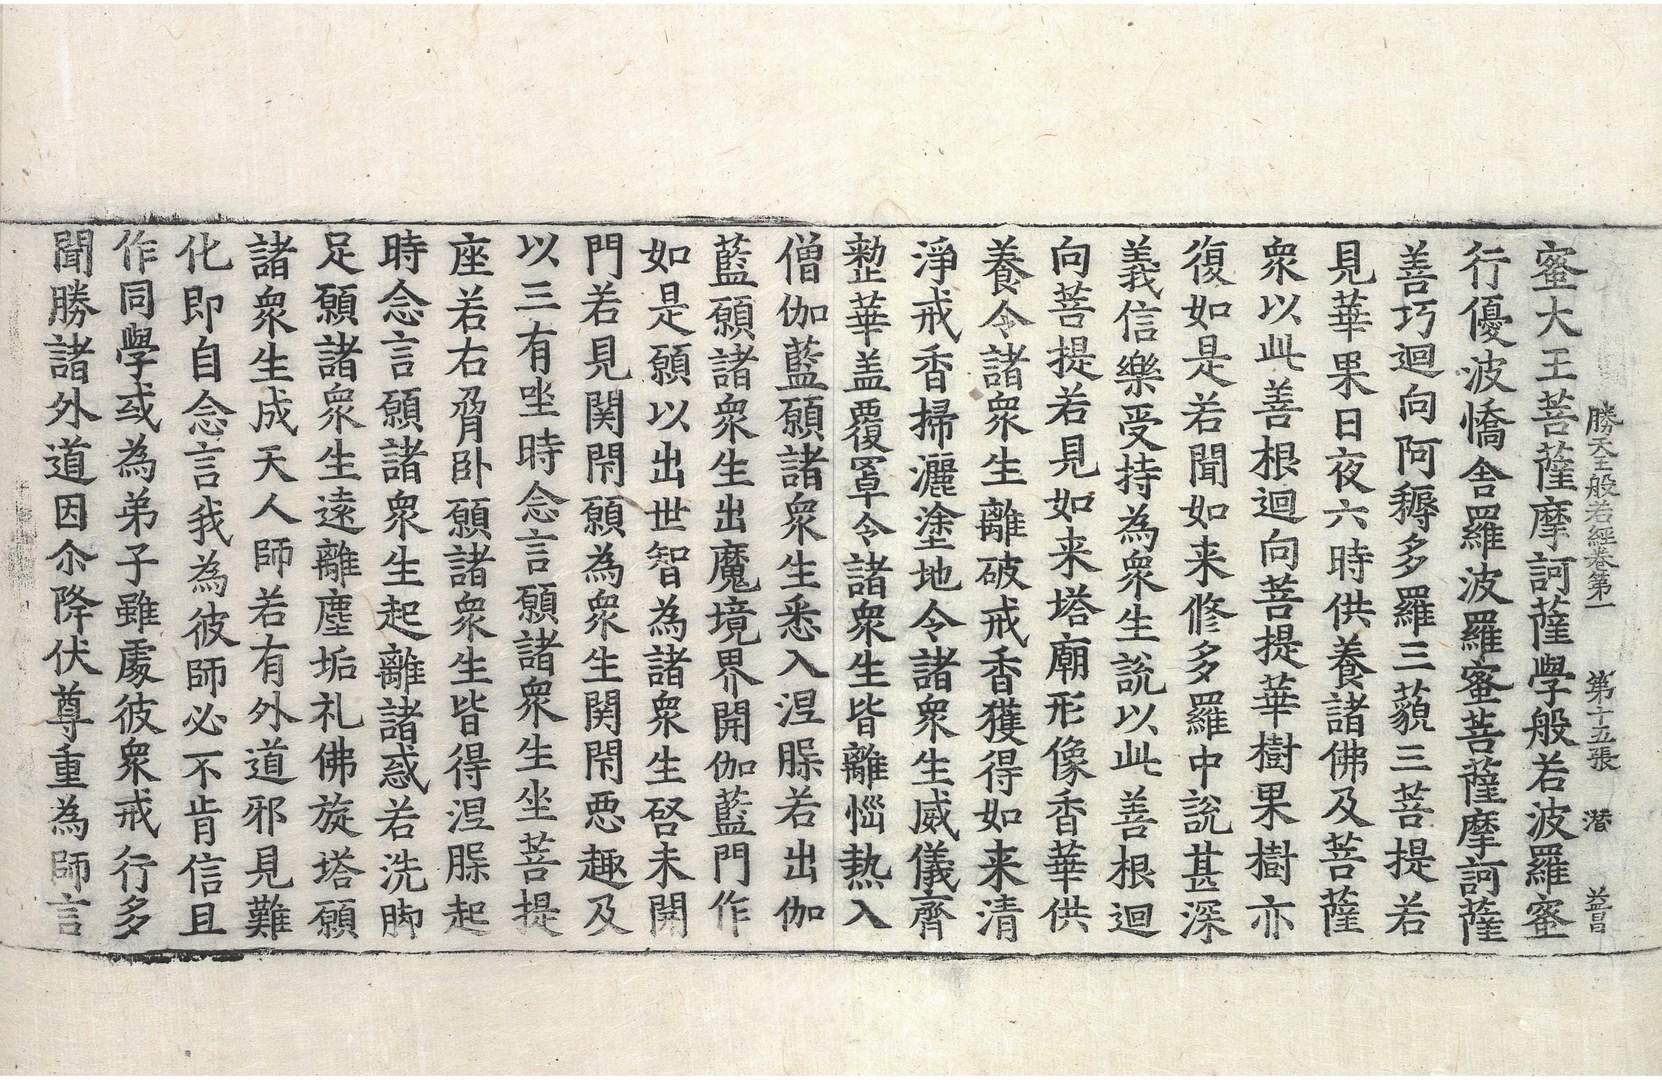 勝天王般若經卷第一　第十五張　潜　益昌
蜜大王菩薩摩訶薩學般若波羅蜜
行優波憍舍羅波羅蜜菩薩摩訶薩
善巧迴向阿耨多羅三藐三菩提若
見華果日夜六時供養諸佛及菩薩
衆以此善根迴向菩提華樹果樹亦
復如是若聞如来修多羅中說甚深
義信樂受持為衆生說以此善根迴
向菩提若見如来塔廟形像香華供
養令諸衆生離破戒香獲得如来清
淨戒香掃灑塗地令諸衆生威儀齊
整華盖覆罩令諸衆生皆離惱熱入
僧伽藍願諸衆生悉入涅槃若出伽
藍願諸衆生出魔境界開伽藍門作
如是願以出世智為諸衆生啓未開
門若見関閇願為衆生関閇惡趣及
以三有唑時念言願諸衆生坐菩提
座若右脅卧願諸衆生皆得涅槃起
時念言願諸衆生起離諸惑若洗脚
足願諸衆生遠離塵垢礼佛旋塔願
諸衆生成天人師若有外道邪見難
化即自念言我為彼師必不肯信且
作同學或為弟子雖處彼衆戒行多
聞勝諸外道因尒降伏尊重為師言